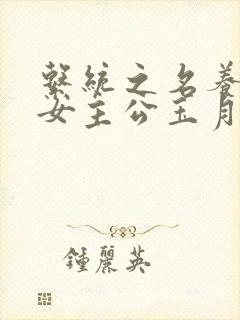 繫統之名養
女主公玉月
鍾麗英